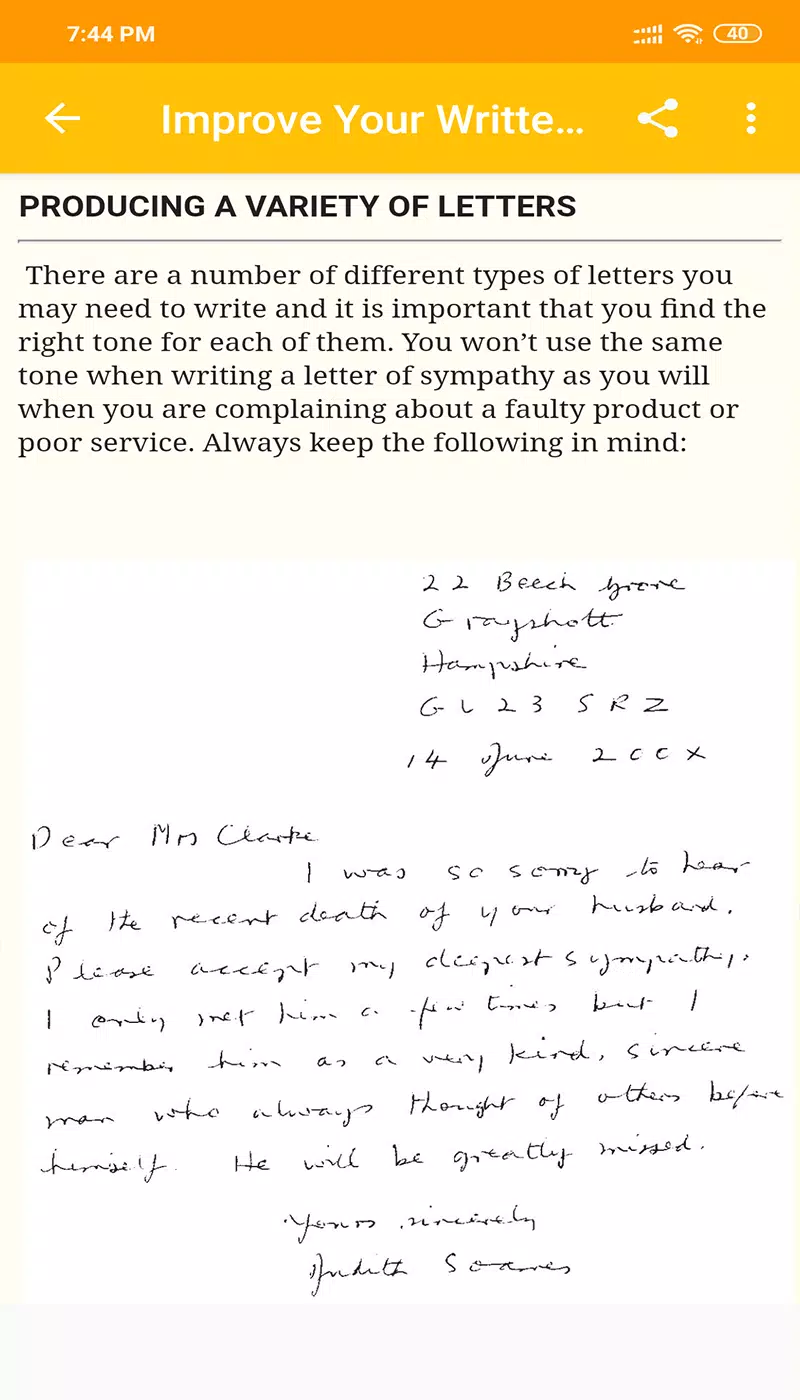 7:44 PM
40
Improve Your Writte...
PRODUCING A VARIETY OF LETTERS
There are a number of different types of letters you
may need to write and it is important that you find the
right tone for each of them. You won’t use the same
tone when writing a letter of sympathy as you will
when you are complaining about a faulty product or
poor service. Always keep the following in mind:
22 Beech Grove
Grayshott
Hampshire
GL23 5RZ
14 June 200X
Dear Mrs Clarke
I was so sorry to hear
of the recent death of your husband.
Please accept my deepest sympathy.
I only met him a few times but I
remember him as a very kind, sincere
man who always thought of others before
himself. He will be greatly missed.
Yours sincerely
Judith Soames